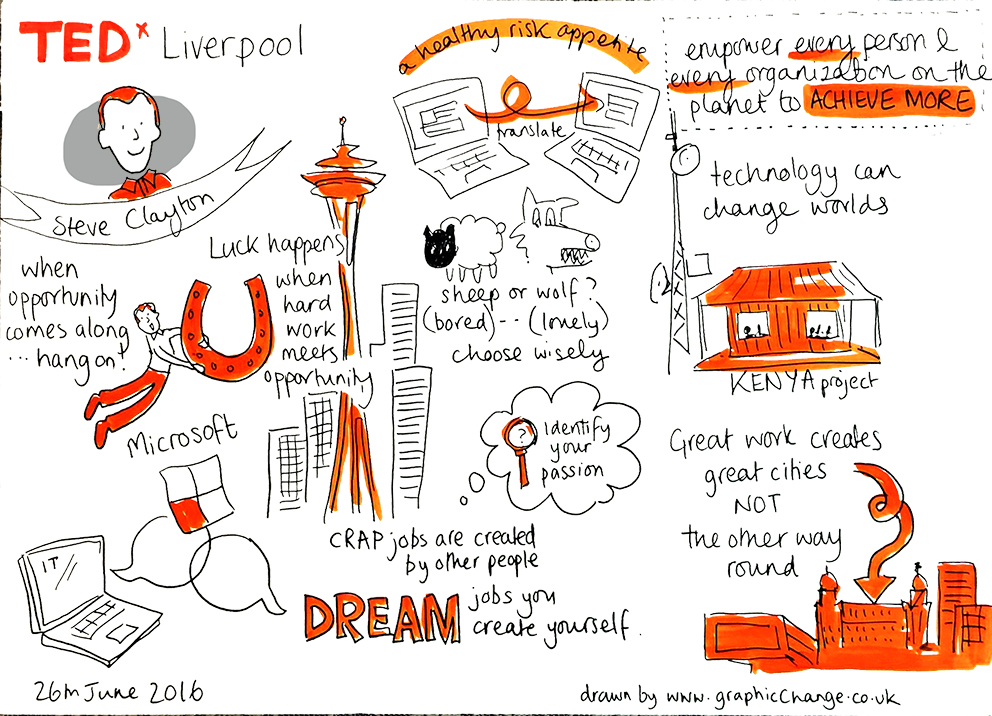 TEDx Liverpool
Steve Clayton
when
opportunity
comes along
... hang on!
Luck happens
when
hard
work
meets
opportunity
Microsoft
IT
26th June 2016
a healthy risk appetite
translate
sheep or wolf?
(bored)--(lonely)
choose wisely
?
Identify
your
passion
CRAP jobs are created
by other people
DREAM jobs you
create yourself.
empower every person &
every organization on the
planet to ACHIEVE MORE
technology can
change worlds
KENYA project
Great work creates
great cities
NOT
the other way
round
drawn by www.graphicChange.co.uk